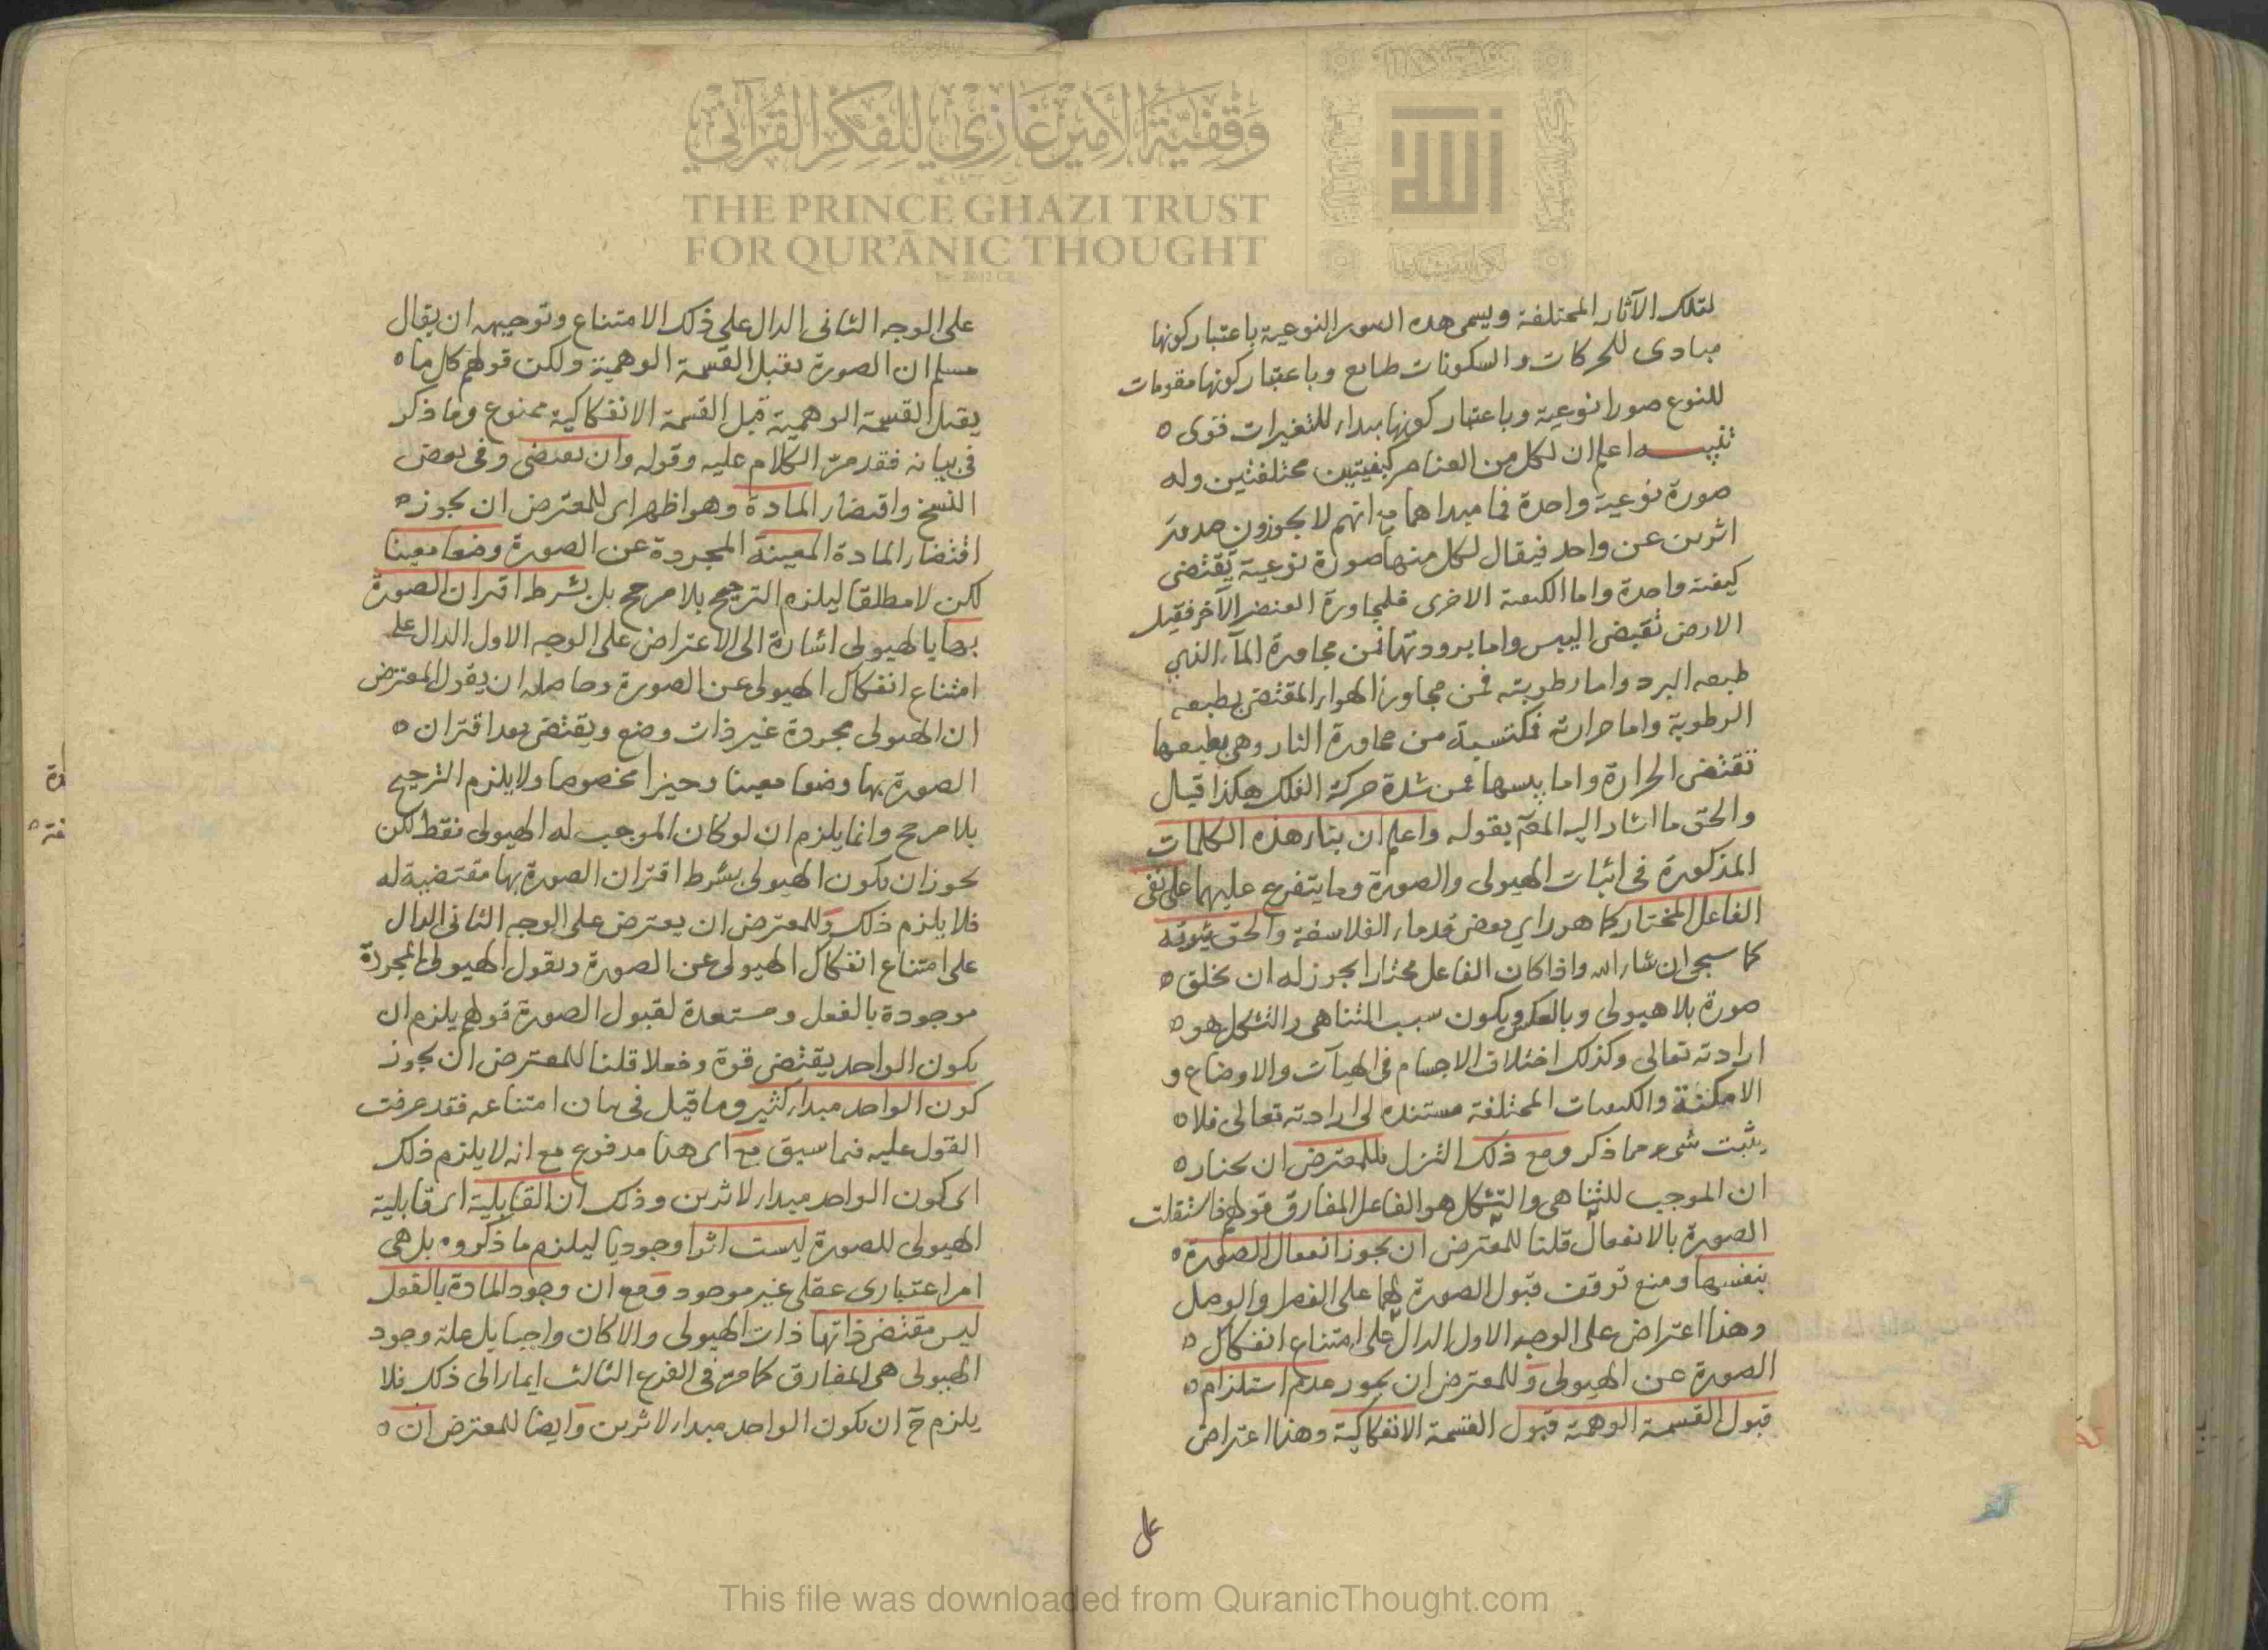 وقفية الأمير غازي للفكر القرآني
THE PRINCE GHAZI TRUST
FOR QUR'ĀNIC THOUGHT
لتلك الآثار المختلفة ويسمى هذه الصور النوعية باعتبار كونها
مبادى للحركات والسكونات طبايع وباعتبار كونها مقومات
للنوع صورا نوعية وباعتبار كونها مبداء للتغيرات قوى
تنبيه اعلم ان لكل من العناصر كيفيتين مختلفتين وله
صورة نوعية واحدة فما مبداهما مع انهم لا يجوزون صدور
اثرين عن واحد فيقال لكل منها صورة نوعية يقتضى
كيفية واحدة واما الكيفية الاخرى فلمجاورة العنصر الآخر فقيل
الارض تقيض اليبس واما برودتها فمن مجاورة المآء الذي
طبعه البرد واما رطوبته فمن مجاورة الهواء المقتضى بطبعه
الرطوبة واما حرارته فمكتسبة من مجاورة النار وهى بطبعها
تقتضى الحرارة واما يبسها فمن شدة حركة الفلك هكذا قيل
والحق ما اشار اليه المصم بقوله واعلم ان بناء هذه الكلمات
المذكورة فى اثبات الهيولى والصورة وما يتفرع عليهما على نفى
الفاعل المختار كما هو راي بعض قدماء الفلاسفة والحق ثبوته
كما سيجى ان شاء الله واذا كان الفاعل مختارا يجوز له ان يخلق
صورة بلا هيولى وبالعكس ويكون سبب التناهى والتشكل هو
ارادته تعالى وكذلك اختلاف الاجسام فى الهيآت والاوضاع و
الامكنة والكيفيات المختلفة مستنده الى ارادته تعالى فلا
يثبت شىء مما ذكر ومع ذلك التنزل فللمعترض ان يختار
ان الموجب للتناهى والتشكل هو الفاعل المفارق قولهم فاستقلت
الصورة بالانفعال قلنا للمعترض ان يجوز انفعال الصورة
بنفسها ومنع توقف قبول الصورة لهما على الفصل والوصل
وهذا اعتراض على الوجه الاول الدال على امتناع انفكاك
الصورة عن الهيولى وللمعترض ان يجوز عدم استلزام
قبول القسمة الوهمية قبول القسمة الانفكاكية وهذا اعتراض
على
على الوجه الثانى الدال على ذلك الامتناع وتوجيهه ان يقال
مسلم ان الصورة تقبل القسمة الوهمية ولكن قولهم كل ما
يقبل القسمة الوهمية قبل القسمة الانفكاكية ممنوع وما ذكر
فى بيانه فقد مر الكلام عليه وقوله وان يقتضى وفى بعض
النسخ واقتضاء المادة وهو اظهر اى للمعترض ان يجوز
اقتضاء المادة المعينة المجردة عن الصورة وضعا معينا
لكن لا مطلقا ليلزم الترجيح بلا مرجح بل بشرط اقتران الصورة
بها يا لهيولى اشارة الى الاعتراض على الوجه الاول الدال على
امتناع انفكاك الهيولى عن الصورة وحاصله ان يقول المعترض
ان الهيولى مجردة غير ذات وضع ويقتضى بعد اقتران
الصورة بها وضعا معينا وحيزا مخصوصا ولا يلزم الترجيح
بلا مرجح وانما يلزم ان لو كان الموجب له الهيولى فقط لكن
يجوز ان يكون الهيولى بشرط اقتران الصورة بها مقتضية له
فلا يلزم ذلك وللمعترض ان يعترض على الوجه الثانى الدال
على امتناع انفكاك الهيولى عن الصورة ويقول الهيولى المجردة
موجودة بالفعل ومستعدة لقبول الصورة قولهم يلزم ان
يكون الواحد يقتضى قوة وفعلا قلنا للمعترض ان يجوز
كون الواحد مبداء كثير وما قيل فى بيان امتناعه فقد عرفت
القول عليه فيما سبق مع اى هذا مدفوع مع انه لا يلزم ذلك
اى كون الواحد مبداء لاثرين وذلك ان القابلية اى قابلية
الهيولى للصورة ليست اثرا وجوديا ليلزم ما ذكروه بل هى
امر اعتبارى عقلى غير موجود ومع ان وجود المادة بالفعل
ليس مقتضى ذاتها ذات الهيولى والا كان واجبا بل علة وجود
الهيولى هى المفارق كما مر فى الفرع الثالث ايماء الى ذلك فلا
يلزم ح ان يكون الواحد مبداء لاثرين وايضا للمعترض ان
This file was downloaded from QuranicThought.com